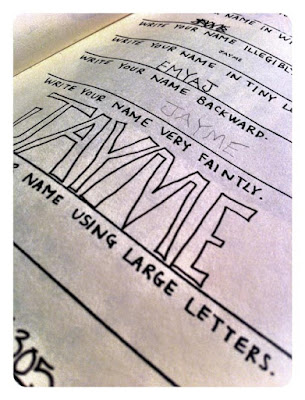 NAME IN
WRITE YOUR NAME ILLEGIBLY.
PAYME
WRITE YOUR NAME IN TINY
EMYAJ
WRITE YOUR NAME BACKWARD.
JAYME
WRITE YOUR NAME VERY FAINTLY.
JAYME
NAME USING LARGE LETTERS.
305